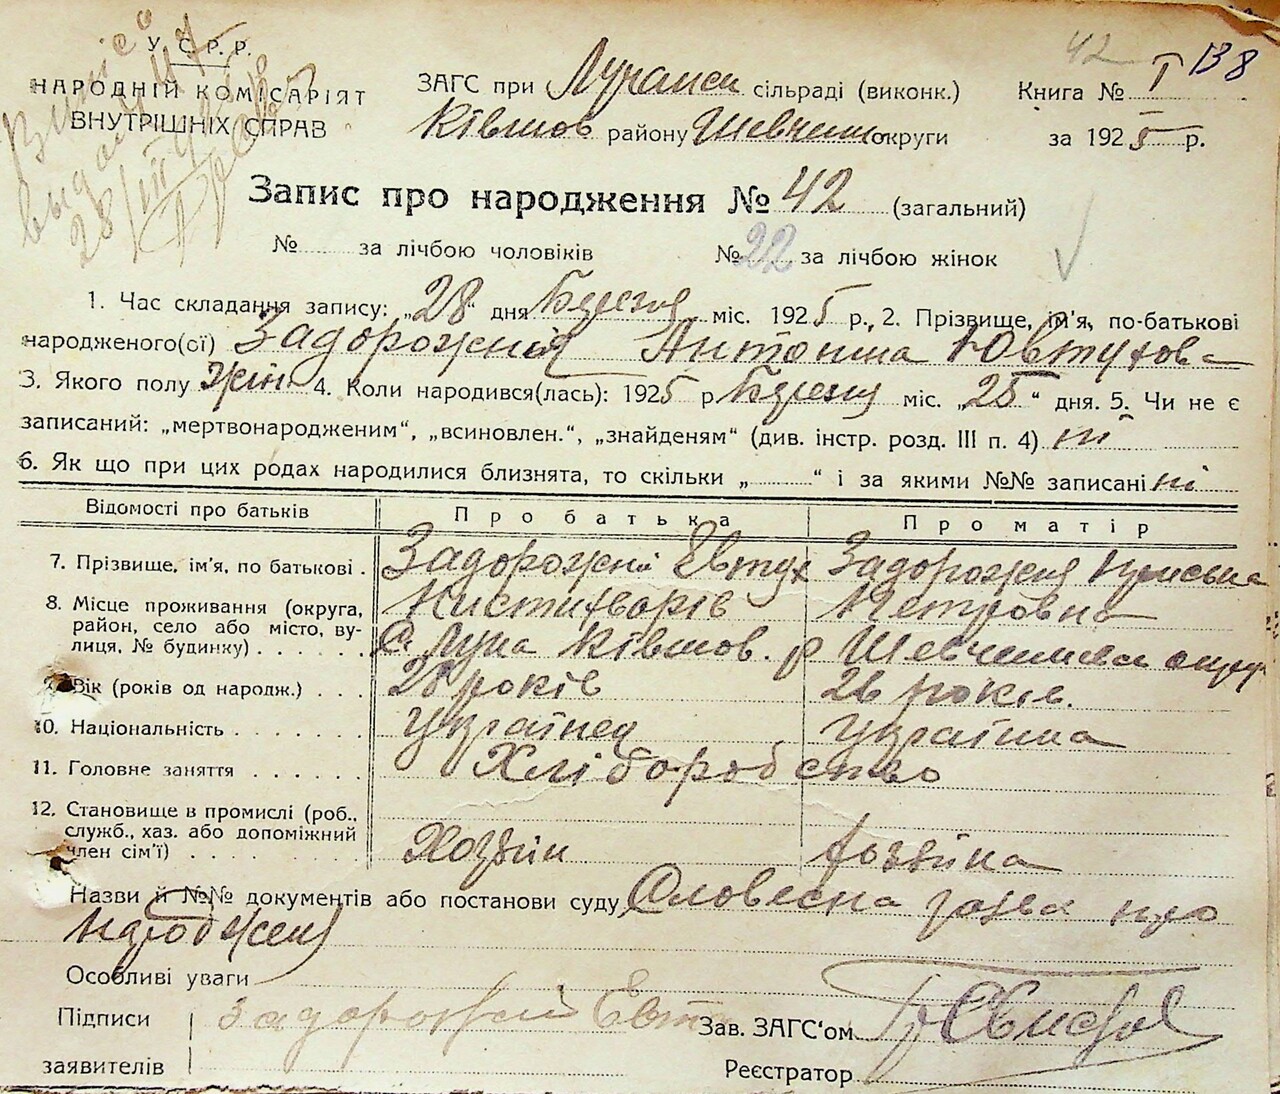 У.С.Р.Р.
НАРОДНІЙ КОМІСАРІЯТ
ВНУТРІШНІХ СПРАВ
42 138
ЗАГС при сільраді (виконк.) Книга № I
Ківшов району Шевченк округи за 1925 р.
28/III
Запис про народження № 42 (загальний)
№ за лічбою чоловіків № 22 за лічбою жінок
1. Час складання запису: „28“ дня Березня міс. 1925 р., 2. Прізвище, ім'я, по-батькові
народженого(ої) Задорожня Антонина Ювтухова
3. Якого полу жін 4. Коли народився(лась): 1925 р Березня міс. „25“ дня. 5. Чи не є
записаний: „мертвонародженим“, „всиновлен.“, „знайденям“ (див. інстр. розд. III п. 4) ні
6. Як що при цих родах народилися близнята, то скільки „ “ і за якими №№ записані ні
Відомості про батьків Про батька Про матір
7. Прізвище, ім'я, по батькові . Задорожній Евтух Задорожня
8. Місце проживання (округа, район, село або місто, вулиця, № будинку) Петровна
с. Лука Ківшов. р Шевченківськ округ
9. Вік (років од народж.) . . . 28 років 26 років.
10. Національність Українец Українка
11. Головне заняття Хліборобство
12. Становище в промислі (роб.,
служб., хаз. або допоміжний
член сім'ї) Хозяін Хозяіка
Назви й №№ документів або постанови суду Словесна заява про
народження
Особливі уваги
Підписи Задорожній Евт Зав. ЗАГС'ом
заявителів Реєстратор